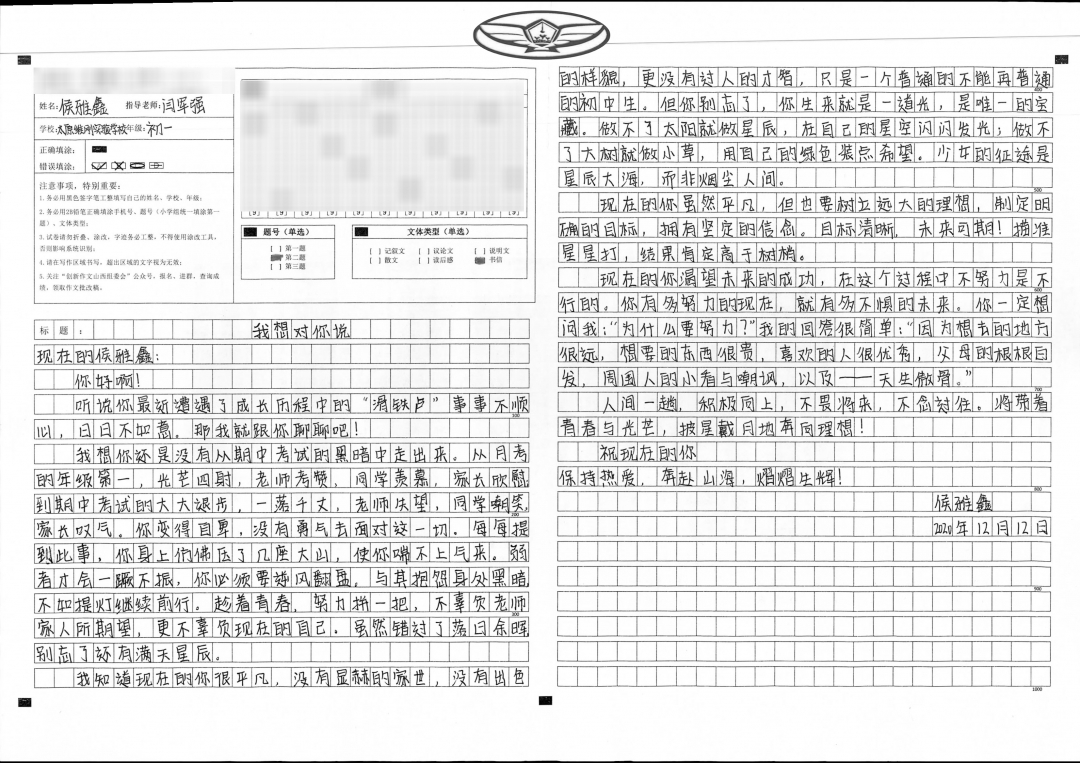 姓名：侯雅鑫 指导老师：闫军强
学校：太原维刚实验学校 年级：初一
正确填涂：
错误填涂：
注意事项，特别重要：
1.务必用黑色签字笔工整填写自己的姓名、学校、年级；
2.务必用2B铅笔正确填涂手机号、题号（小学组统一填涂第一
题）、文体类型；
3.试卷请勿折叠、涂改，字迹务必工整，不得使用涂改工具，
否则影响系统识别；
4.请在写作区域书写，超出区域的文字视为无效；
5.关注“创新作文山西组委会”公众号，报名、进群、查询成
绩，领取作文批改稿。
[9] [9] [9] [9] [9] [9] [9] [9] [9] [9] [9]
题号（单选）
[ ] 第一题
第二题
[ ] 第三题
文体类型（单选）
[ ] 记叙文 [ ] 议论文 [ ] 说明文
[ ] 散文 [ ] 读后感 书信
标题： 我想对你说
现在的侯雅鑫：
你好啊！
听说你最近遭遇了成长历程中的“滑铁卢”事事不顺
100
心，日日不如意。那我就跟你聊聊吧！
我想你还是没有从期中考试的黑暗中走出来。从月考
的年级第一，光芒四射，老师考赞，同学羡慕，家长欣慰
到期中考试的大大退步，一落千丈，老师失望，同学嘲笑，
200
家长叹气。你变得自卑，没有勇气去面对这一切。每每提
到此事，你身上仿佛压了几座大山，使你喘不上气来。弱
者才会一蹶不振，你必须要逆风翻盘。与其抱怨身处黑暗
不如提灯继续前行。趁着青春，努力拼一把，不辜负老师
300
家人所期望，更不辜负现在的自己。虽然错过了落日余晖
别忘了还有满天星辰。
我知道现在的你很平凡，没有显赫的家世，没有出色
的样貌，更没有过人的才智，只是一个普通的不能再普通
400
的初中生。但你别忘了，你生来就是一道光，是唯一的宝
藏。做不了太阳就做星辰，在自己的星空闪闪发光；做不
了大树就做小草，用自己的绿色装点希望。少女的征途是
星辰大海，而非烟尘人间。
500
现在的你虽然平凡，但也要树立远大的理想，制定明
确的目标，拥有坚定的信念。目标清晰，未来可期！瞄准
星星打，结果肯定高于树梢。
现在的你渴望未来的成功，在这个过程中不努力是不
600
行的。你有多努力的现在，就有多不惧的未来。你一定想
问我：“为什么要努力？”我的回答很简单：“因为想去的地方
很远，想要的东西很贵，喜欢的人很优秀，父母的根根白
发，周围人的小看与嘲讽，以及——天生傲骨。”
700
人间一趟，积极向上，不畏将来，不念过往。将带着
青春与光芒，披星戴月地奔向理想！
祝现在的你
保持热爱，奔赴山海，熠熠生辉！
800
侯雅鑫
2020年12月12日
900
1000